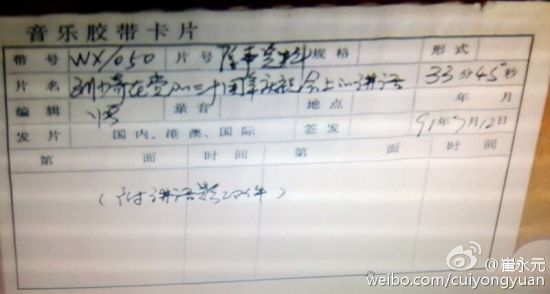 音乐胶带卡片
带号 WX/050 片号 资料 规格 形式
片名 刘少奇在党的三十周年庆祝会上的讲话 33分45秒
编辑 录音 地点 年 月
发片 国内、港澳、国际 签发 91年7月12日
第 面 时间 第 面 时间
(附讲话
@崔永元
weibo.com/cuiyongyuan